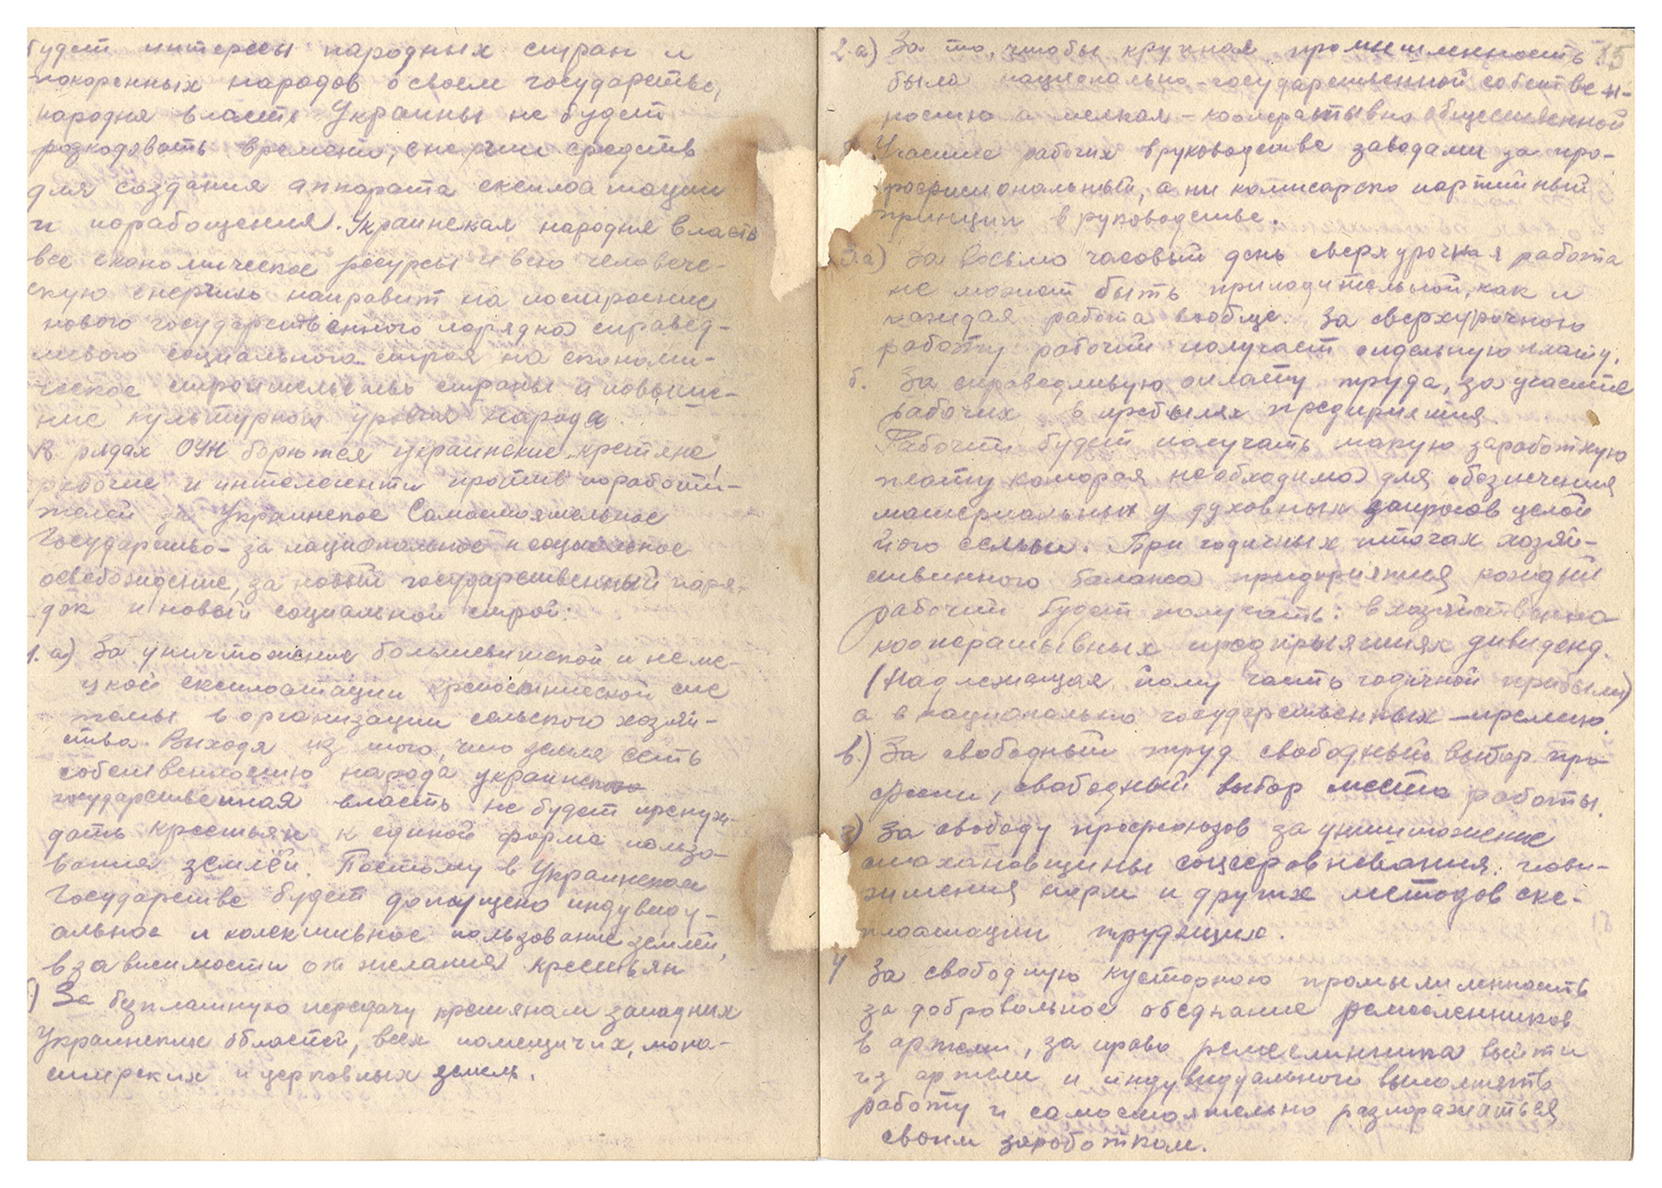 будет интересы народных стран и
покоренных народов в своем государстве,
народня власть Украины не будет
розходовать времени, енергии средств
для создания аппарата експлоатации
и порабощения. Украинская народня власть
все економическое ресурсы и всю человече-
скую енергию направит на построение
нового государственного порядка справед-
ливого социального строя на економи-
ческое строительство страны и повыше-
ние культурного уровня народа.
В рядах ОУН борются украинские крестяне,
рабочие и интелегенты против поработи-
телей за Украинское Самостоятельное
Государство - за национальное и социальное
освобождение, за новый государственный поря-
док и новый социальной строй:
1. а) За уничтожение большевитской и неме-
цкой експлоатации крепостнической сис
темы в организации сельского хозяй-
ства. Выходя из того, что земля есть
собственностю народа украинско
государственная власть не будет принуж-
дать крестьян к единой форме пользо-
вания землей. Поетому в Украинском
Государстве будет допущено индувиду-
альное и колективное пользование землей,
в зависимости от желания крестьян
б) За безплатную передачу крестянам западних
Украинских областей, всех помещичих, мона-
стирских и церковных земель.
2. а) За то, чтобы крупная промышленность 15
была национально-государственной собствен-
ностю а мелкая - кооперативно общественной
Участие рабочих в руководстве заводами за про-
фросиональный, а ни комисарско партийный
принцип в руководстве.
3. а) За восьмо часовый день сверхурочная работа
не может быть принодительной, как и
каждая работа вообще. За сверхурочною
работу рабочий получает отдельную плату.
б. За справедливую оплату труда, за участие
рабочих в прибылях предприятия.
Рабочий будет получать такую заработную
плату которая необходима для обезпечения
материальных у духовных запросов целой
його семьи. При годичных итогах хозяй-
ственного баланса предприятия каждый
рабочий будет получать: в хозяйственно
кооперативных предприятиях дивиденд.
(Надлежащая йому часть годичной прибыли)
а в национально государственных - премию.
в) За свободный труд свободный выбор про-
фесии, свободный выбор места работы.
г) За свободу профсоюзов за уничтожение
стахановщины соцсоревнования. пови-
жшения норм и других методов екс-
плоатации трудящих.
4 За свободную кусторною промышленность
за добровольное обеднание ремесленников
в артели, за право ремеслинника выйти
из артели и индувидуального выполнять
работу и самостоятельно разпоражаться
своим заработком.